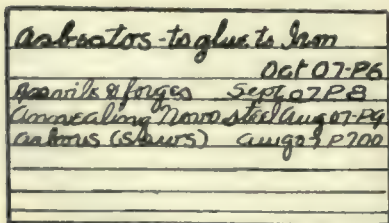 Asbestors - to glue to Iron
Oct 07-P6
Anvils & forges Sept 07 P8
Annealing Novo steel Aug 07-P9
Arbors (  ) Aug 07 P700